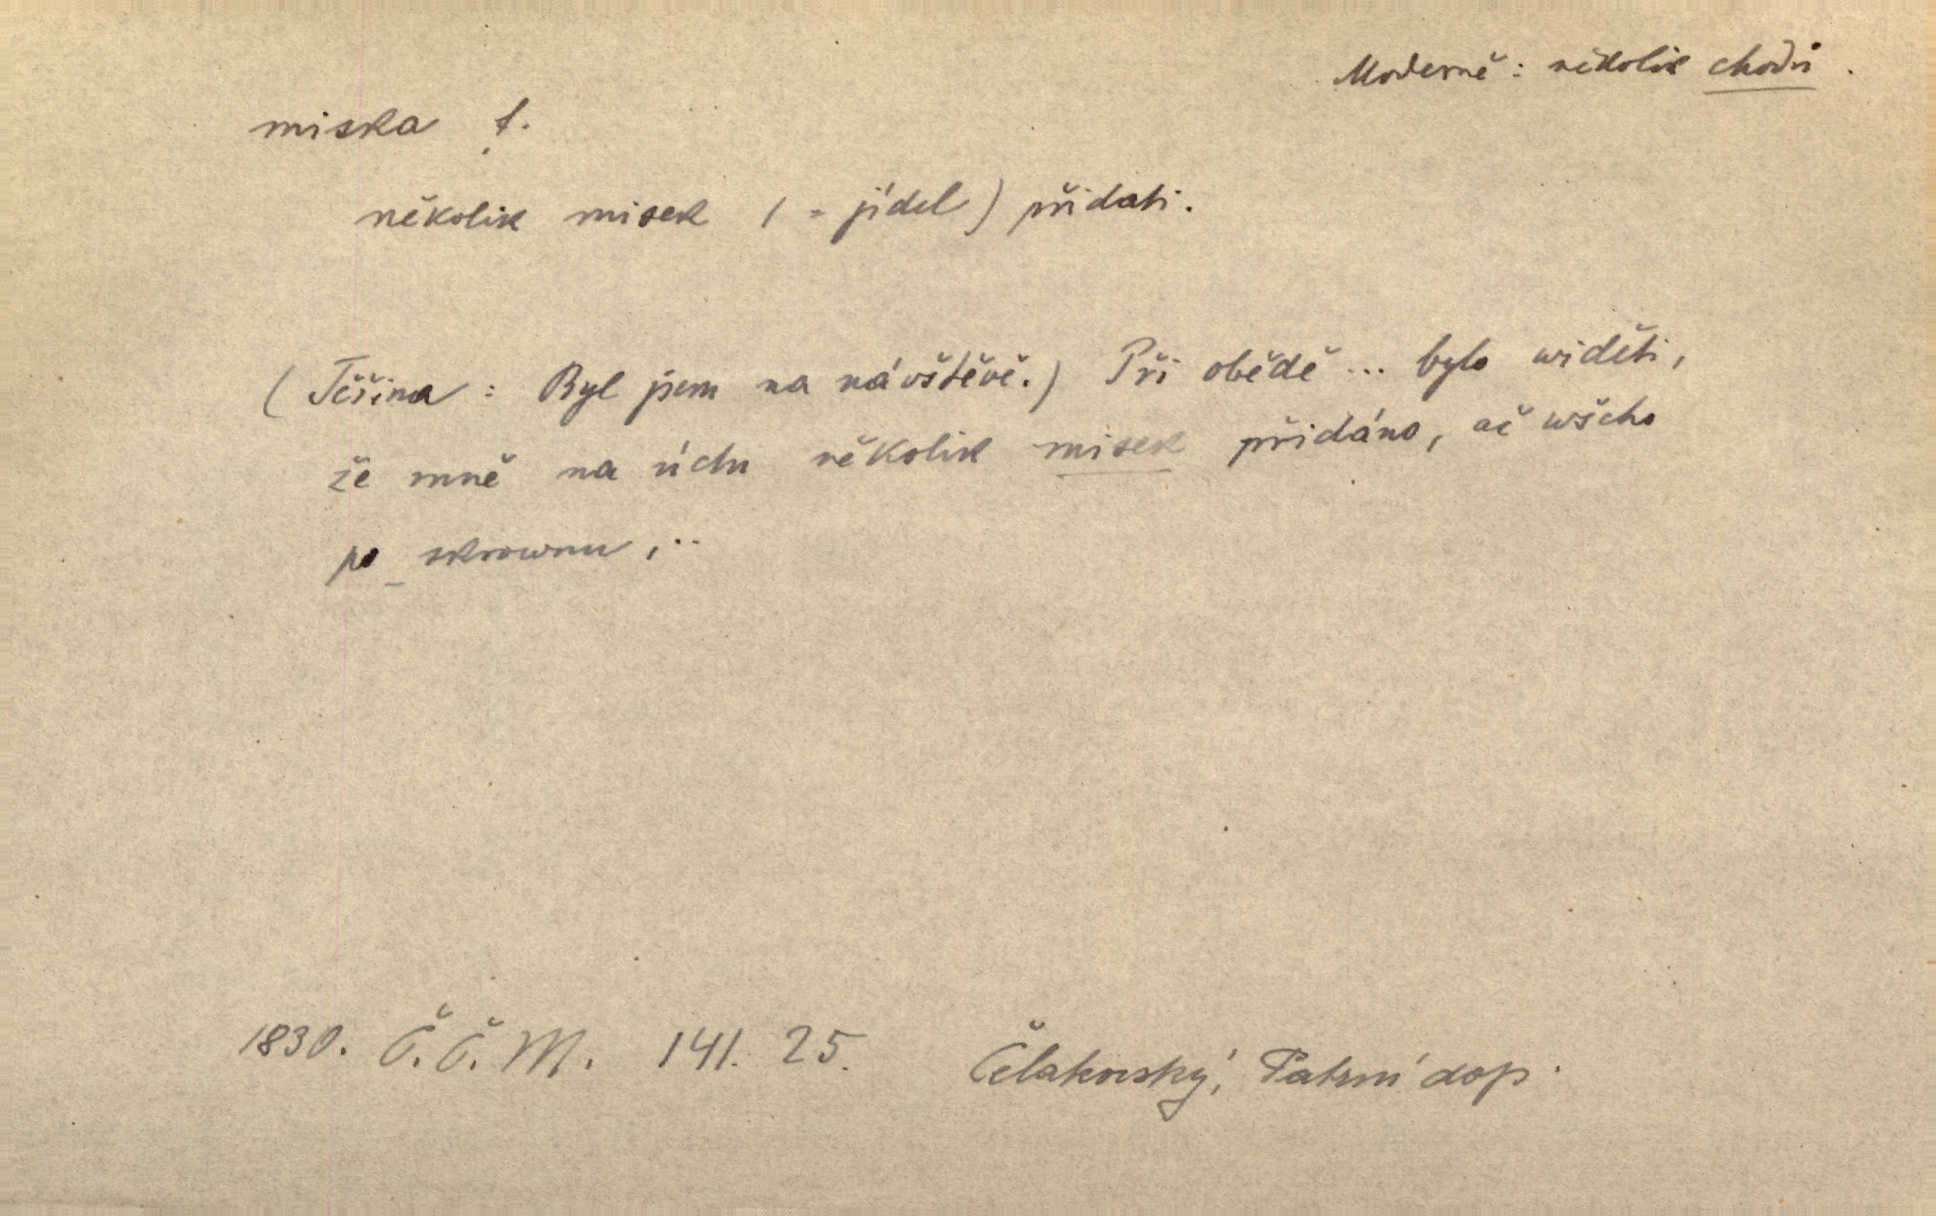 Moderně: několik chodů.
miska f.
několik misek (= jídel) přidati.
(Těšina: Byl jsem na návštěvě.) Při obědě ... bylo widěti,
že mně na úctu několik misek přidáno, ač wšeho
po_skrownu, ..
1830. Č. Č. M. 141. 25. Čelakovský, dop.